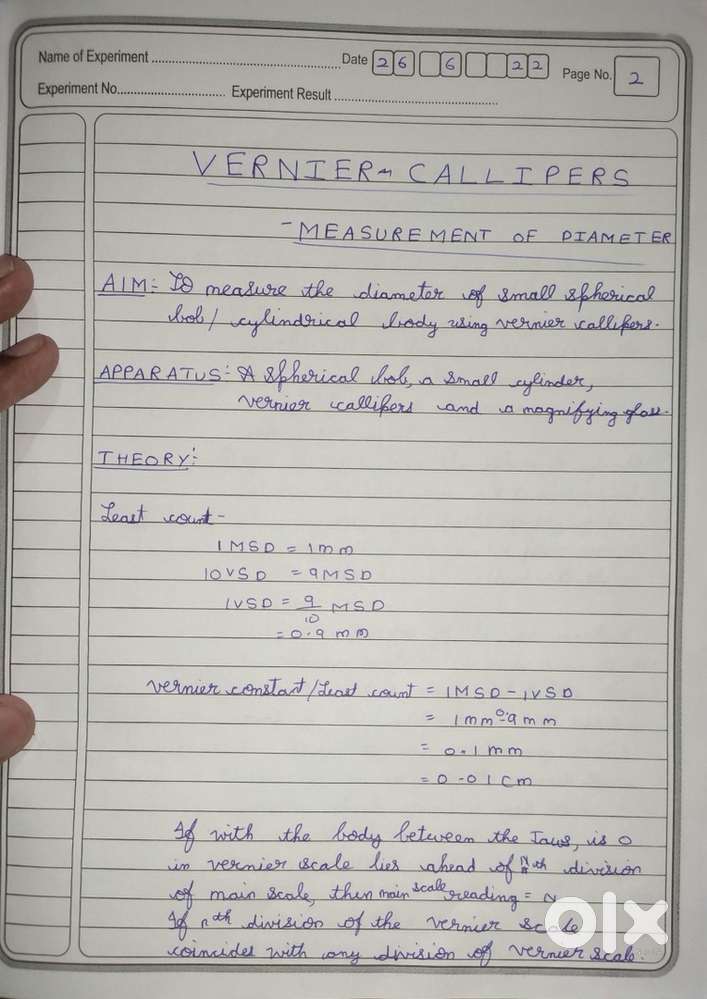 Name of Experiment ................................................ Date 26 6 22 Page No. 2
Experiment No............................ Experiment Result ..........................................
VERNIER - CALLIPERS
- MEASUREMENT OF DIAMETER
AIM:- To measure the diameter of small spherical
bob / cylindrical body using vernier callipers.
APPARATUS:- A spherical bob, a small cylinder,
vernier callipers and a magnifying glass.
THEORY:
Least count -
1 MSD = 1 mm
10 VSD = 9 MSD
1 VSD = 9/10 MSD
= 0.9 mm
Vernier constant / Least count = 1 MSD - 1 VSD
= 1 mm - 0.9 mm
= 0.1 mm
= 0.01 cm
If with the body between the Jaws, is 0
in vernier scale lies ahead of Nth division
of main scale, then main scale reading = N
If nth division of the vernier scale
coincides with any division of vernier scale.
olx